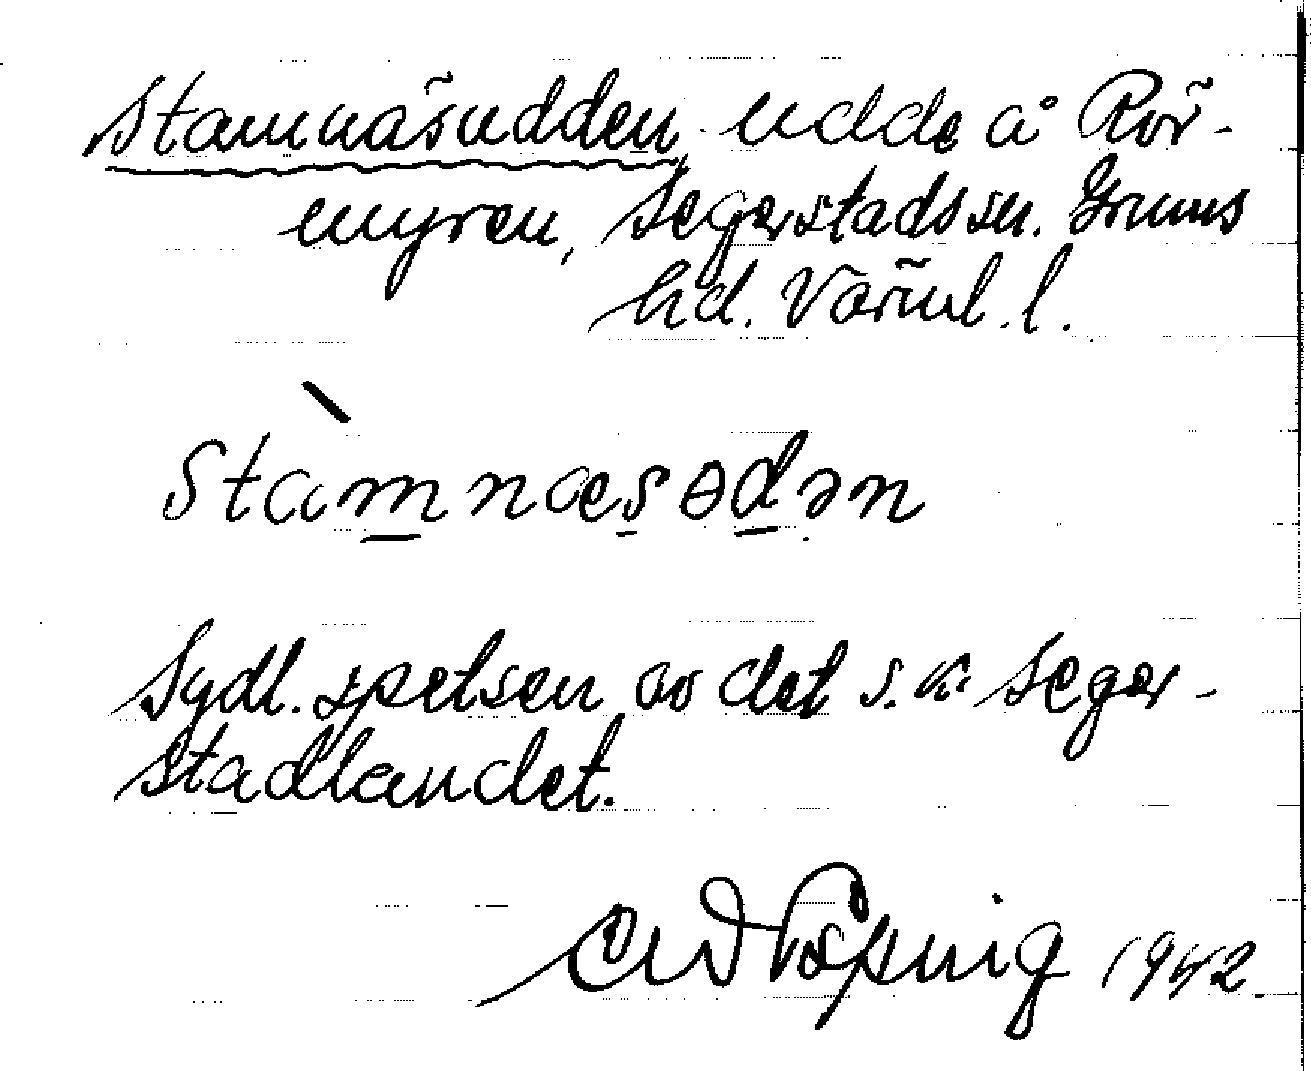 Stamnäsudden udde å Rör-
myren, Segerstads sn. Grums
hd. Värml. l.
stàmnæsɵdən
Sydl. spetsen av det s. k. Seger-
stadlandet.
1942